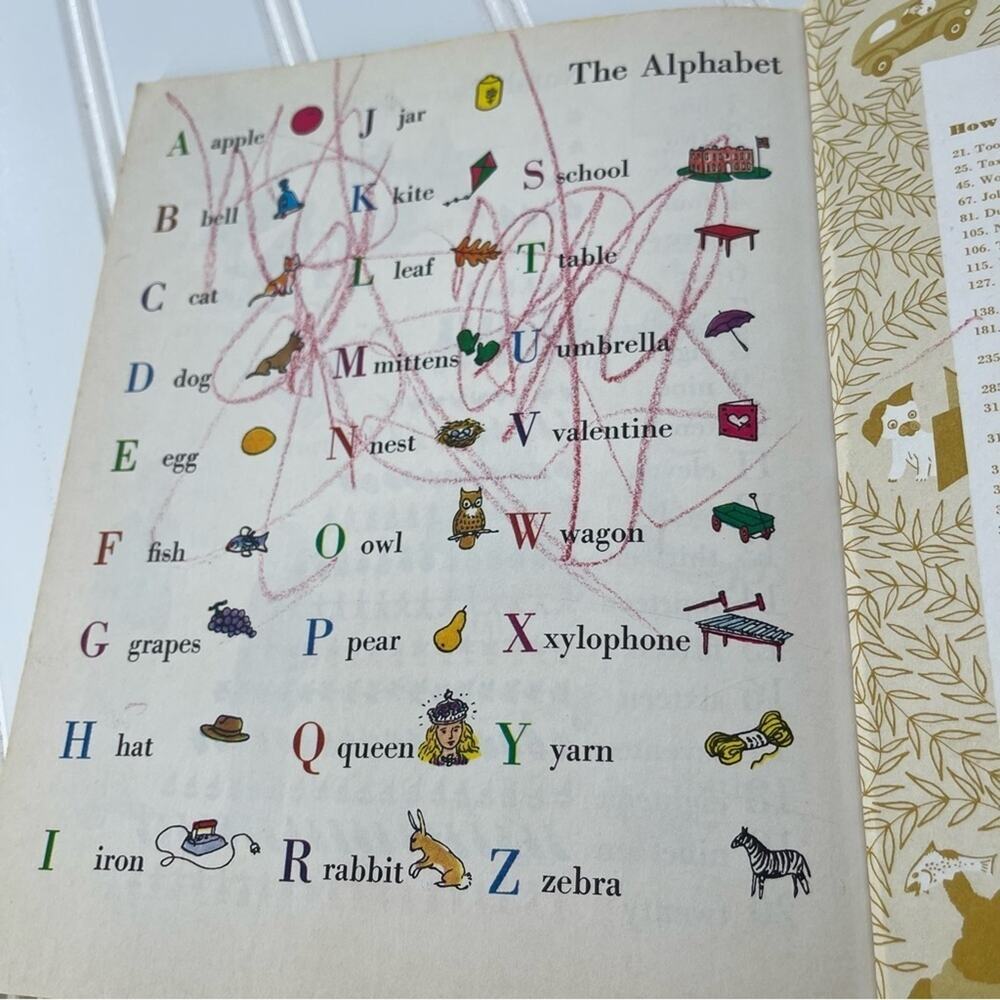 The Alphabet
A apple
B bell
C cat
D dog
E egg
F fish
G grapes
H hat
I iron
J jar
K kite
L leaf
M mittens
N nest
O owl
P pear
Q queen
R rabbit
S school
T table
U umbrella
V valentine
W wagon
X xylophone
Y yarn
Z zebra
How
21.
25.
45.
67.
81.
105.
106.
115.
127.
138.
181.
235